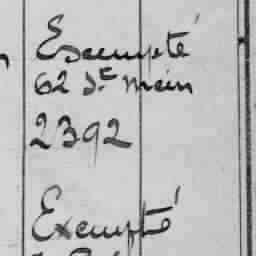 Exempté
62 St Main
2392
Exempté